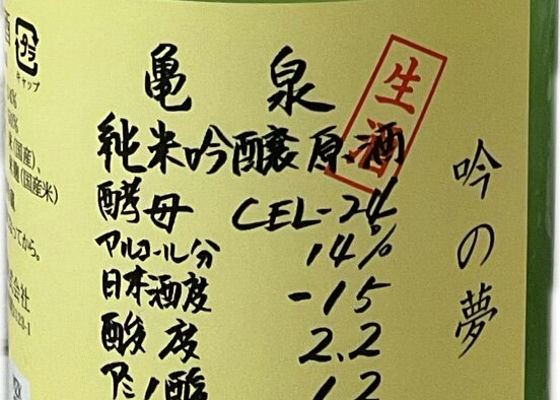 亀泉
生酒
純米吟醸原酒
酵母 CEL-24
アルコール分 14%
日本酒度 -15
酸度 2.2
アミノ酸 1.2
吟の夢
酒
プラ
キャップ
(国産)、
(国産米)